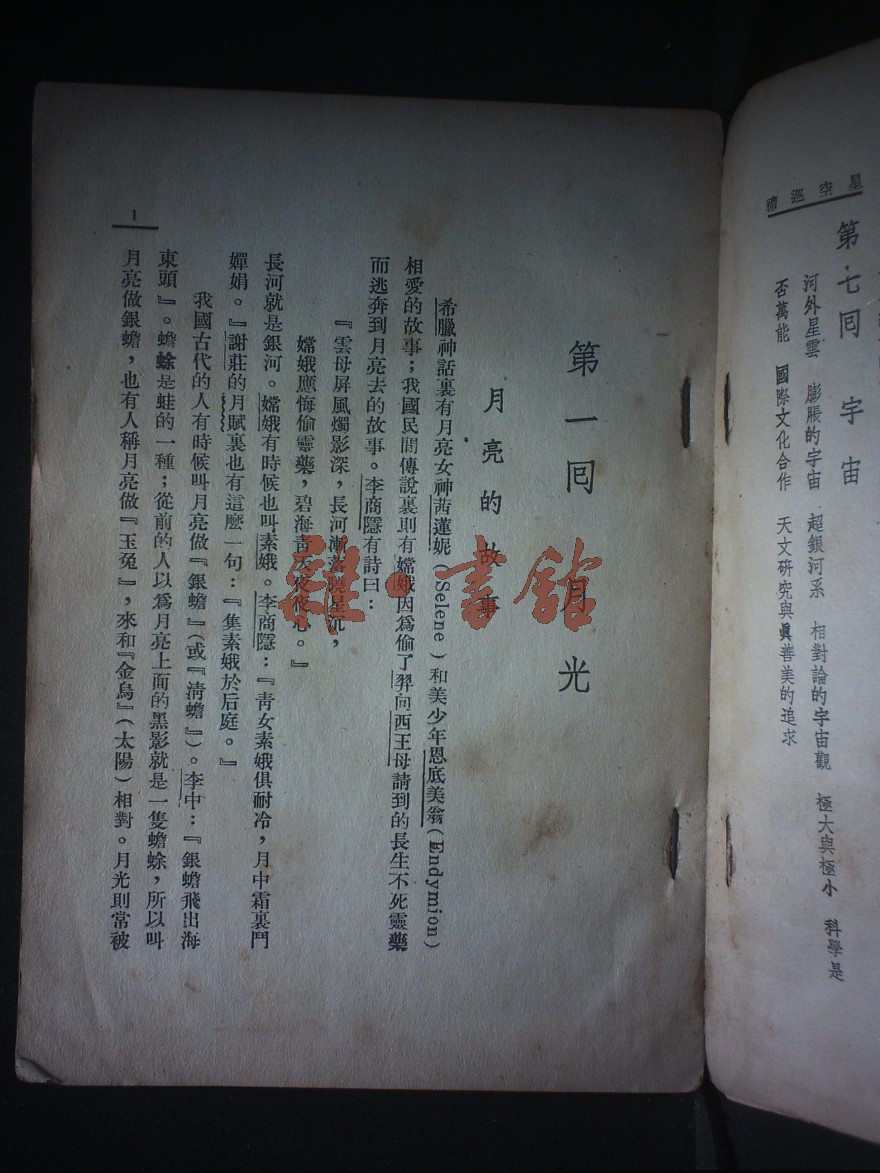 星空巡禮
第七囘 宇宙
河外星雲 膨脹的宇宙 超銀河系 相對論的宇宙觀 極大與極小 科學是
否萬能 國際文化合作 天文研究與眞善美的追求
第一囘 月光
月亮的故事
希臘神話裏有月亮女神茜蓮妮(Selene)和美少年恩底美翁(Endymion)
相愛的故事；我國民間傳說裏則有嫦娥因爲偷了羿向西王母請到的長生不死靈藥
而逃奔到月亮去的故事。李商隱有詩曰：
『雲母屏風燭影深，長河漸落曉星沉，
嫦娥應悔偷靈藥，碧海靑天夜夜心。』
長河就是銀河。嫦娥有時候也叫素娥。李商隱：『靑女素娥俱耐冷，月中霜裏鬥
嬋娟。』謝莊的月賦裏也有這麼一句：『集素娥於后庭。』
我國古代的人有時候叫月亮做『銀蟾』(或『淸蟾』)。李中：『銀蟾飛出海
東頭』。蟾蜍是蛙的一種；從前的人以爲月亮上面的黑影就是一隻蟾蜍，所以叫
月亮做銀蟾，也有人稱月亮做『玉兔』，來和『金烏』(太陽)相對。月光則常被
1
雜·書館